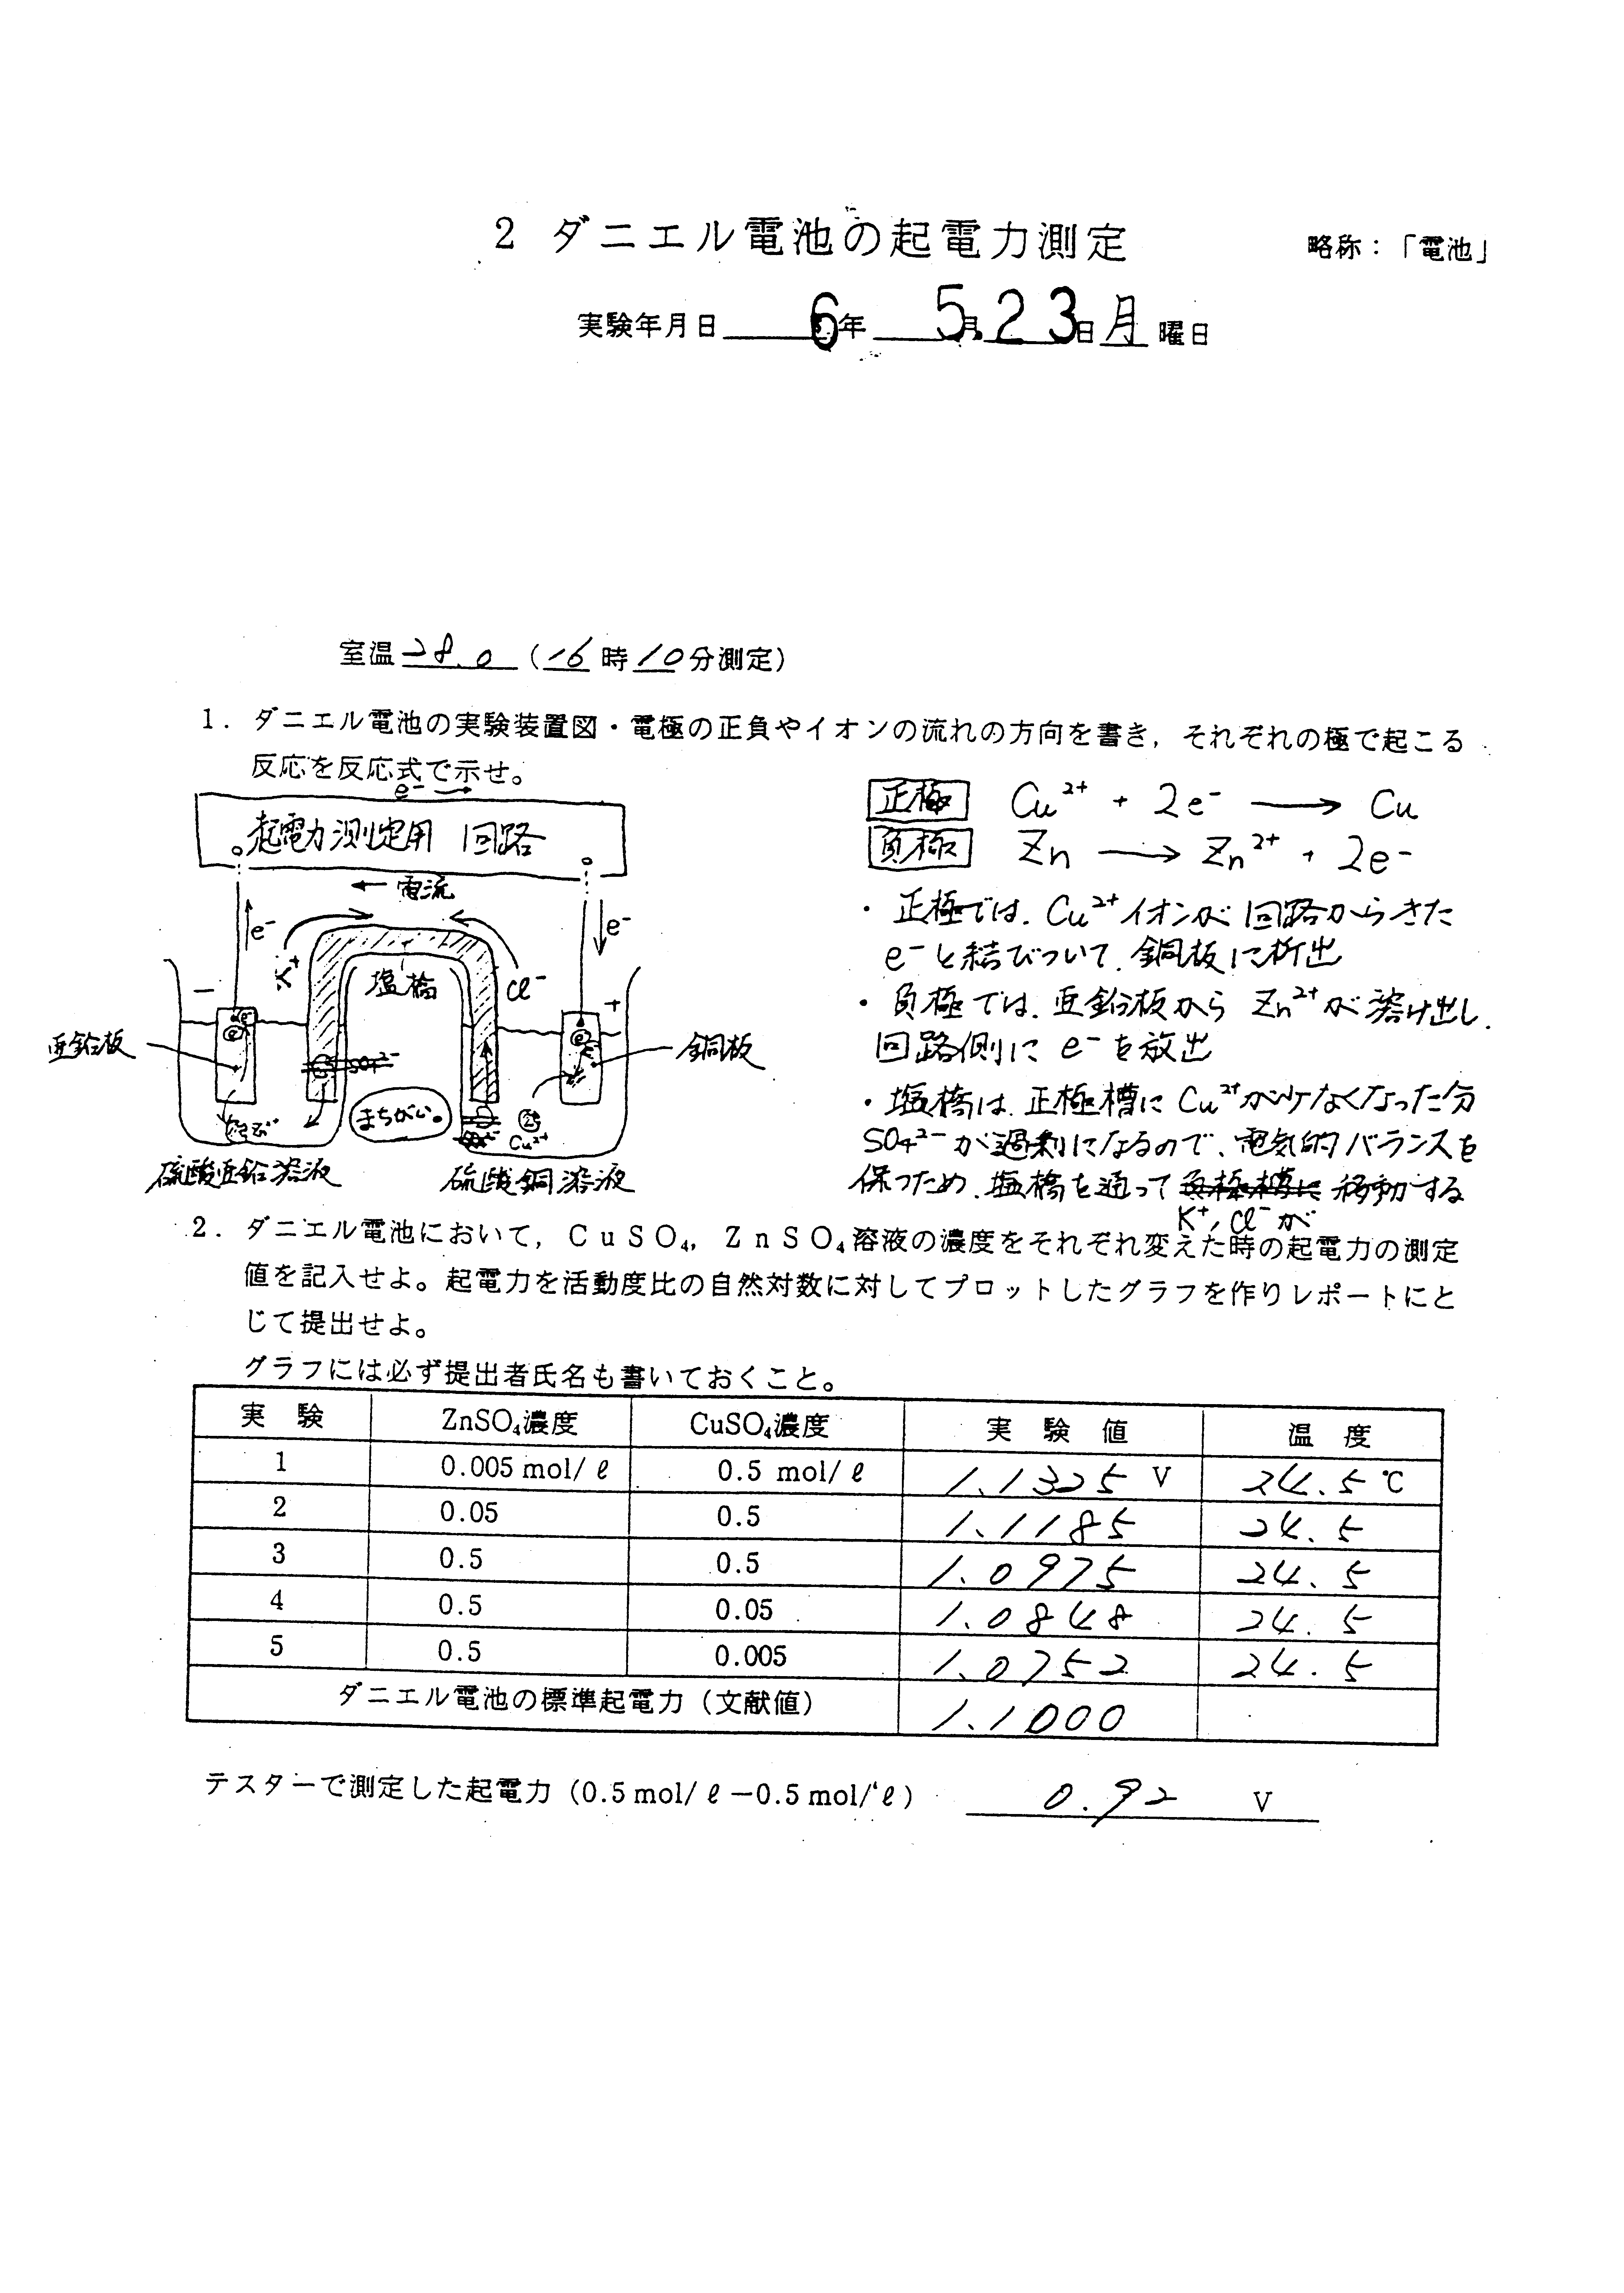 2 ダニエル電池の起電力測定
略称：「電池」
実験年月日 6年 5月 23日 月 曜日
室温 28.0 (16時10分測定)
1. ダニエル電池の実験装置図・電極の正負やイオンの流れの方向を書き，それぞれの極で起こる
反応を反応式で示せ。
e⁻ →
起電力測定用 回路
← 電流
e⁻
e⁻
K⁺
塩橋
Cl⁻
−
+
亜鉛板
銅板
SO₄²⁻
まちがい。
Cu²⁺
硫酸亜鉛溶液
硫酸銅溶液
正極 Cu²⁺ + 2e⁻ → Cu
負極 Zn → Zn²⁺ + 2e⁻
・正極では、Cu²⁺イオンが回路からきた
e⁻と結びついて、銅板に析出
・負極では、亜鉛板から Zn²⁺が溶け出し、
回路側に e⁻を放出
・塩橋は、正極槽に Cu²⁺が少なくなった分
SO₄²⁻が過剰になるので、電気的バランスを
保つため、塩橋を通って 負極槽に 移動する
K⁺, Cl⁻が
2. ダニエル電池において，CuSO₄，ZnSO₄溶液の濃度をそれぞれ変えた時の起電力の測定
値を記入せよ。起電力を活動度比の自然対数に対してプロットしたグラフを作りレポートにと
じて提出せよ。
グラフには必ず提出者氏名も書いておくこと。
実 験 ZnSO₄濃度 CuSO₄濃度 実 験 値 温 度
1 0.005 mol/ℓ 0.5 mol/ℓ 1.1325 V 24.5 ℃
2 0.05 0.5 1.1185 24.5
3 0.5 0.5 1.0975 24.5
4 0.5 0.05 1.0848 24.5
5 0.5 0.005 1.0752 24.5
ダニエル電池の標準起電力（文献値） 1.1000
テスターで測定した起電力（0.5 mol/ℓ－0.5 mol/ℓ） 0.92 V